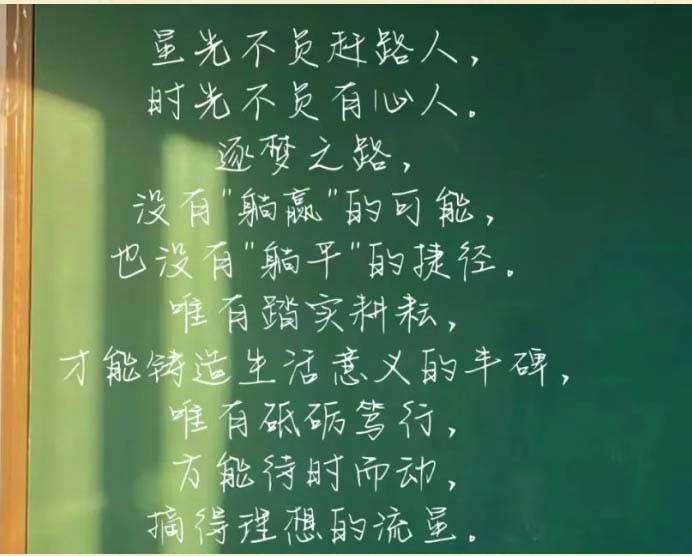 星光不负赶路人，
时光不负有心人。
逐梦之路，
没有"躺赢"的可能，
也没有"躺平"的捷径。
唯有踏实耕耘，
才能铸造生活意义的丰碑，
唯有砥砺笃行，
方能待时而动，
摘得理想的流星。